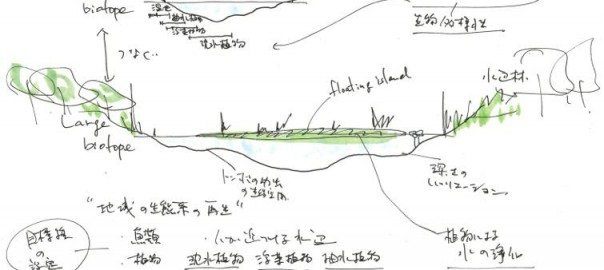 biotope
湿生
抽水植物
浮葉植物
沈水植物
生物多様性
つなぐ
floating island
水辺林
Large
biotope
トンボの
深さの
バリエーション
"地域の生態系の再生"
目標種
の
設定
・魚類
・人が近づける水辺
・植物 沈水植物 浮葉植物 抽水植物
植物による
水の浄化